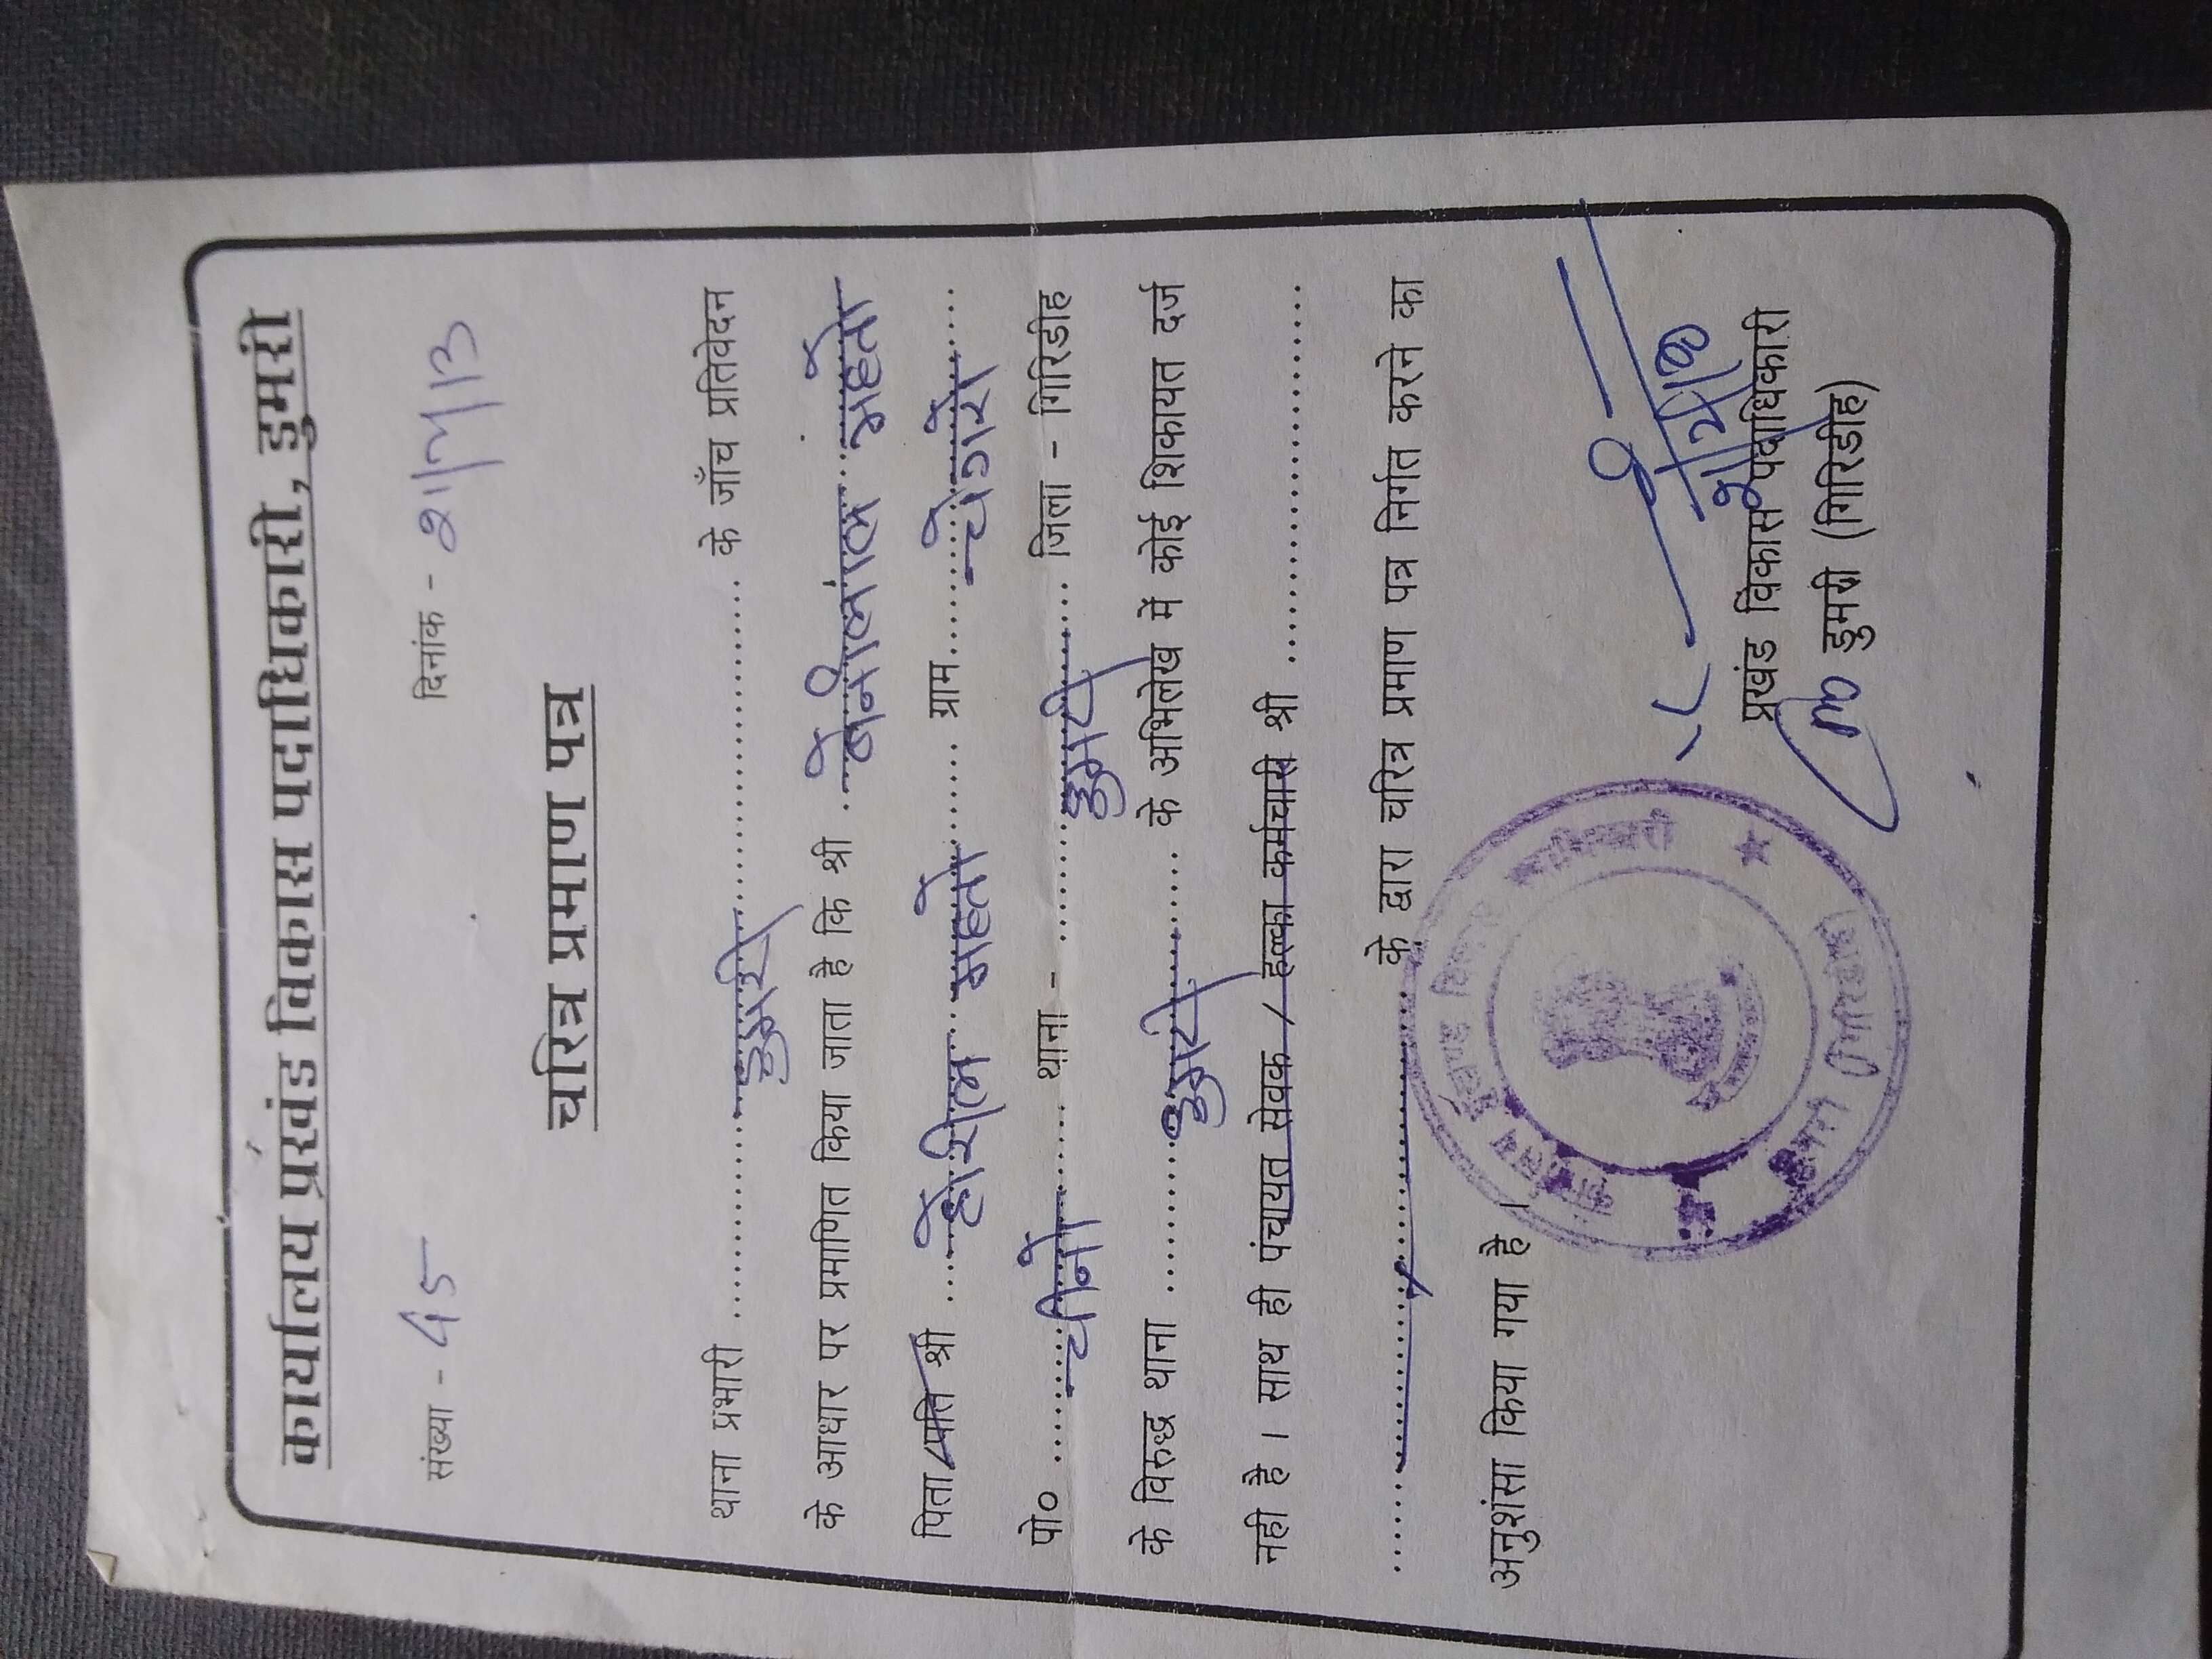 कार्यालय प्रखंड विकास पदाधिकारी, डुमरी
संख्या - 45 दिनांक - 21/7/13
चरित्र प्रमाण पत्र
थाना प्रभारी .......... डुमरी .......... के जाँच प्रतिवेदन
के आधार पर प्रमाणित किया जाता है कि श्री .......... महतो
पिता / पति श्री .... महतो ...... ग्राम ..........
पो० .......... थाना - .......... डुमरी .... जिला - गिरिडीह
के विरुद्ध थाना .......... डुमरी .......... के अभिलेख में कोई शिकायत दर्ज
नही है । साथ ही पंचायत सेवक / हल्का कर्मचारी श्री ..........
.......... के द्वारा चरित्र प्रमाण पत्र निर्गत करने का
अनुशंसा किया गया है ।
प्रखंड विकास पदाधिकारी
डुमरी (गिरिडीह)